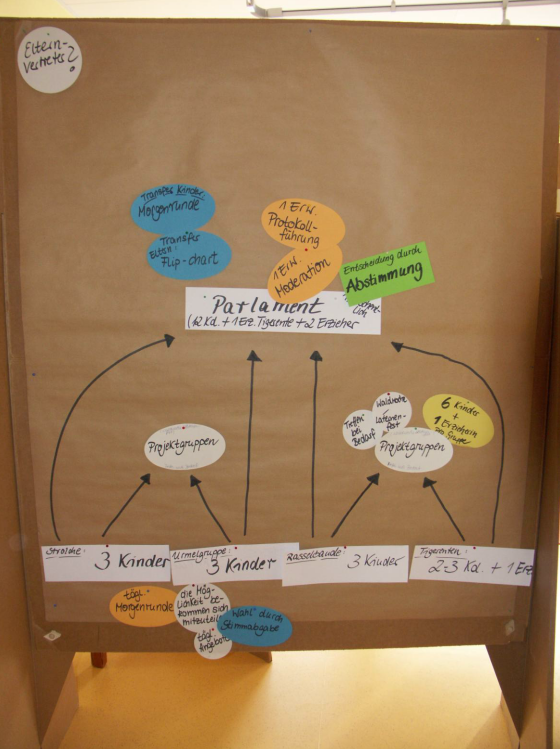 Eltern-
vertreter?
Transfer Kinder:
Morgenrunde
Transfer
Eltern:
Flip-chart
1 Erw.
Protokoll-
führung
1 Erw.
Moderation
Entscheidung durch
Abstimmung
Parlament
(12 Kd. + 1 Erz. Tigerente + 2 Erzieher
Projektgruppen
Treffen
bei
Bedarf
Waldwoche
Laternen-
fest
Projektgruppen
6 Kinder
+
1 Erzieherin
pro Gruppe
Strolche:
3 Kinder
Urmelgruppe:
3 Kinder
Rasselbande:
3 Kinder
Tigerenten:
2-3 Kd. + 1 Erz
tägl.
Morgenrunde
die Mög-
lichkeit be-
kommen sich
mitzuteilen
tägl.
Angebote
Wahl durch
Stimmabgabe